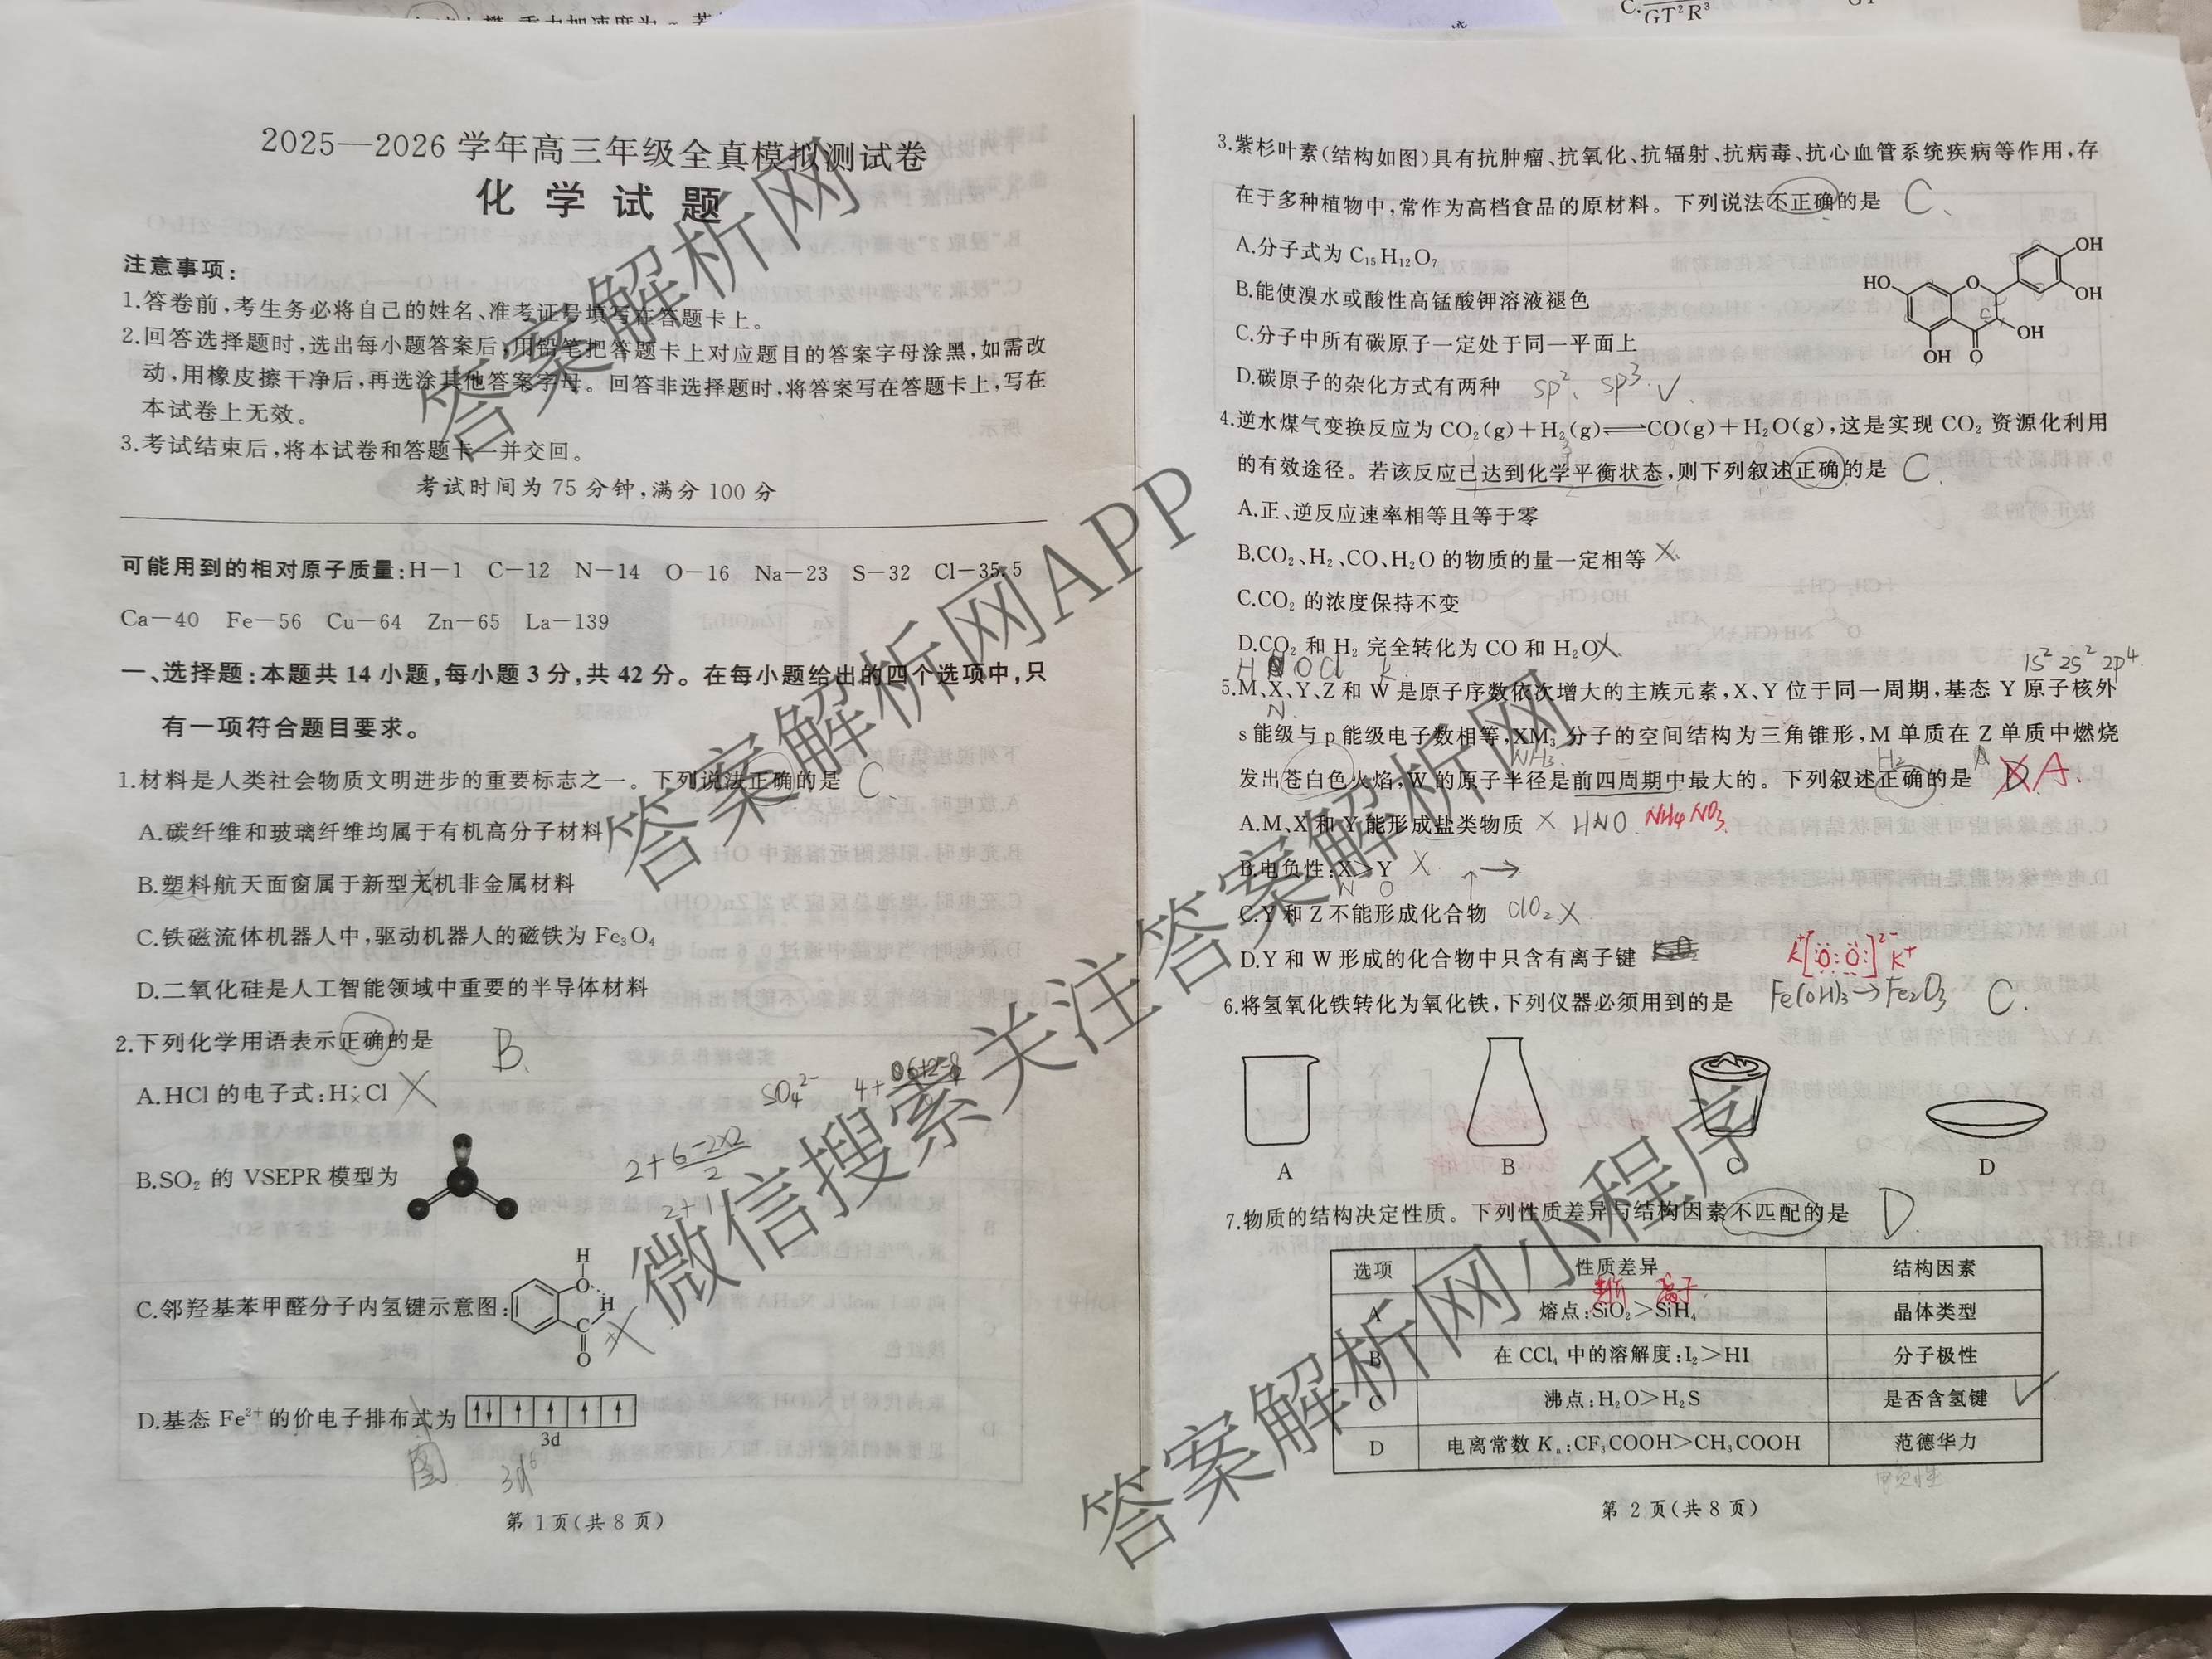 C. GT²R³
2025—2026 学年高三年级全真模拟测试卷
化 学 试 题
注意事项:
1.答卷前,考生务必将自己的姓名、准考证号填写在答题卡上。
2.回答选择题时,选出每小题答案后,用铅笔把答题卡上对应题目的答案字母涂黑,如需改
动,用橡皮擦干净后,再选涂其他答案字母。回答非选择题时,将答案写在答题卡上,写在
本试卷上无效。
3.考试结束后,将本试卷和答题卡一并交回。
考试时间为 75 分钟,满分 100 分
可能用到的相对原子质量:H—1 C—12 N—14 O—16 Na—23 S—32 Cl—35.5
Ca—40 Fe—56 Cu—64 Zn—65 La—139
一、选择题:本题共 14 小题,每小题 3 分,共 42 分。在每小题给出的四个选项中,只
有一项符合题目要求。
1.材料是人类社会物质文明进步的重要标志之一。下列说法正确的是 C、
A.碳纤维和玻璃纤维均属于有机高分子材料
B.塑料航天面窗属于新型无机非金属材料
C.铁磁流体机器人中,驱动机器人的磁铁为 Fe₃O₄
D.二氧化硅是人工智能领域中重要的半导体材料
2.下列化学用语表示正确的是 B.
A.HCl 的电子式:H:Cl ×
SO₄²⁻
B.SO₂ 的 VSEPR 模型为
2+(6-2×2)/2
2+1
C.邻羟基苯甲醛分子内氢键示意图:
H
O
H
C
O
×
D.基态 Fe²⁺ 的价电子排布式为 ↑↓ ↑ ↑ ↑ ↑
3d
图 3d⁶
第 1页(共 8 页)
3.紫杉叶素(结构如图)具有抗肿瘤、抗氧化、抗辐射、抗病毒、抗心血管系统疾病等作用,存
在于多种植物中,常作为高档食品的原材料。下列说法不正确的是 C、
A.分子式为 C₁₅H₁₂O₇
B.能使溴水或酸性高锰酸钾溶液褪色
C.分子中所有碳原子一定处于同一平面上
D.碳原子的杂化方式有两种 sp²、sp³ √
HO
O
OH
OH
OH
OH
O
4.逆水煤气变换反应为 CO₂(g)+H₂(g)⇌CO(g)+H₂O(g),这是实现 CO₂ 资源化利用
的有效途径。若该反应已达到化学平衡状态,则下列叙述正确的是 C
A.正、逆反应速率相等且等于零
B.CO₂、H₂、CO、H₂O 的物质的量一定相等 ×
C.CO₂ 的浓度保持不变
D.CO₂ 和 H₂ 完全转化为 CO 和 H₂O ×
H N O Cl K 1s² 2s² 2p⁴
5.M、X、Y、Z 和 W 是原子序数依次增大的主族元素,X、Y 位于同一周期,基态 Y 原子核外
N
s 能级与 p 能级电子数相等,XM₃ 分子的空间结构为三角锥形,M 单质在 Z 单质中燃烧
NH₃ H₂
发出苍白色火焰,W 的原子半径是前四周期中最大的。下列叙述正确的是 A.
A.M、X 和 Y 能形成盐类物质 × HNO NH₄NO₃
B.电负性:X>Y ×
N O
C.Y 和 Z 不能形成化合物 ClO₂ ×
D.Y 和 W 形成的化合物中只含有离子键
K⁺[:O:O:]²⁻K⁺
6.将氢氧化铁转化为氧化铁,下列仪器必须用到的是 Fe(OH)₃→Fe₂O₃ C.
A B C D
7.物质的结构决定性质。下列性质差异与结构因素不匹配的是 D
选项 性质差异 结构因素
A 熔点:SiO₂>SiH₄ 晶体类型
B 在 CCl₄ 中的溶解度:I₂>HI 分子极性
C 沸点:H₂O>H₂S 是否含氢键 √
D 电离常数 Kₐ:CF₃COOH>CH₃COOH 范德华力
电负性
第 2 页(共 8 页)
答案解析网
答案解析网APP
微信搜索关注答案解析网
答案解析网小程序